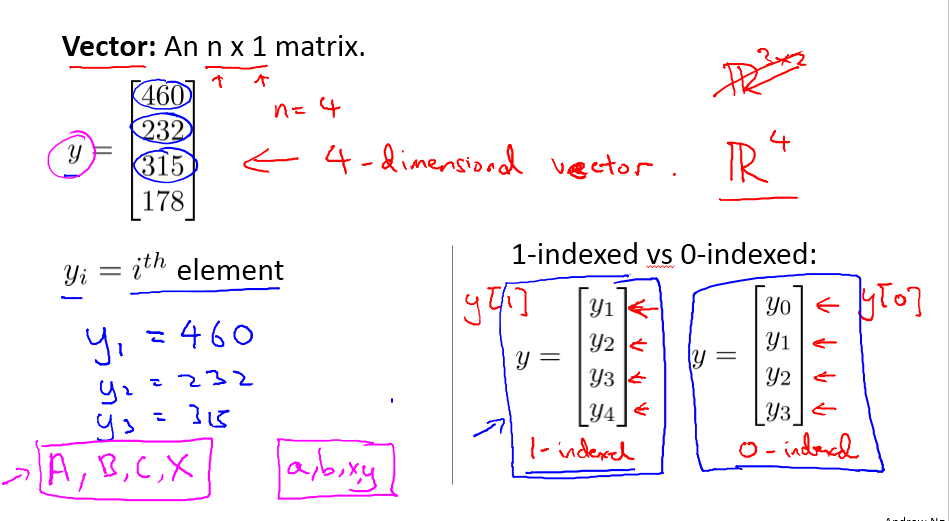 Vector: An n x 1 matrix.
ℝ³ˣ²
n = 4
y = [460
232
315
178]
← 4-dimensional vector.
ℝ⁴
yᵢ = iᵗʰ element
y₁ = 460
y₂ = 232
y₃ = 315
A, B, C, X
a, b, x, y
1-indexed vs 0-indexed:
y[1]
y = [y₁
y₂
y₃
y₄]
1-indexed
y[0]
y = [y₀
y₁
y₂
y₃]
0-indexed